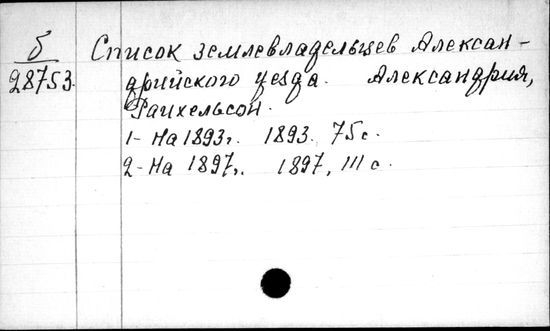 б Список землевладельцев Алексан-
28753. дрийского уезда. Александрия,
Райхельсон.
1- На 1893г. 1893. 75 с.
2- На 1897г. 1897, 111 с.